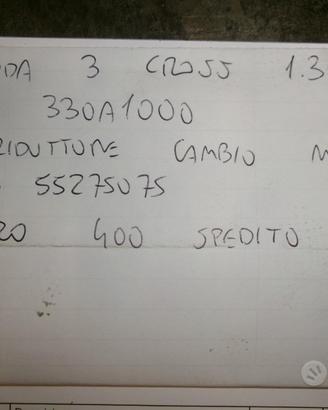 DA 3 CROSS 1.3
330A1000
RIDUTTORE CAMBIO M
55275075
RO 400 SPEDITO